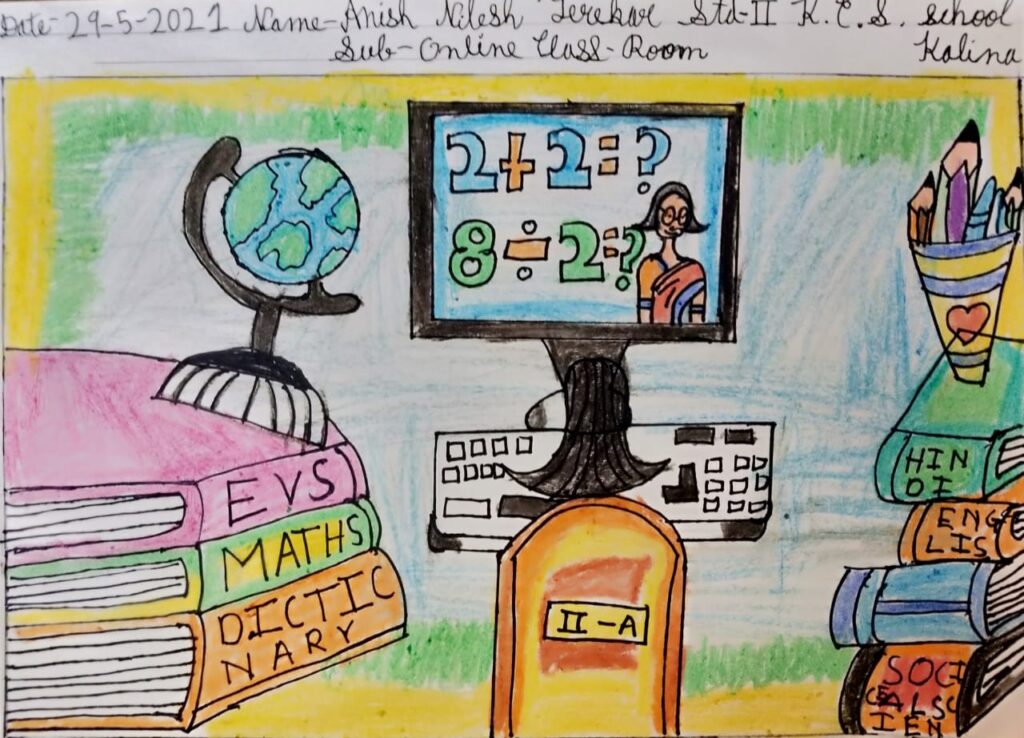 Date:- 29-5-2021 Name-Anish Nilesh Terekar Std-II K.E.S. School
Sub-Online Class-Room Kalina
2+2=?
8÷2=?
EVS
MATHS
DICTIC
NARY
HIN
DI
ENG
LIS
SOCI
AL SC
IEN
II-A